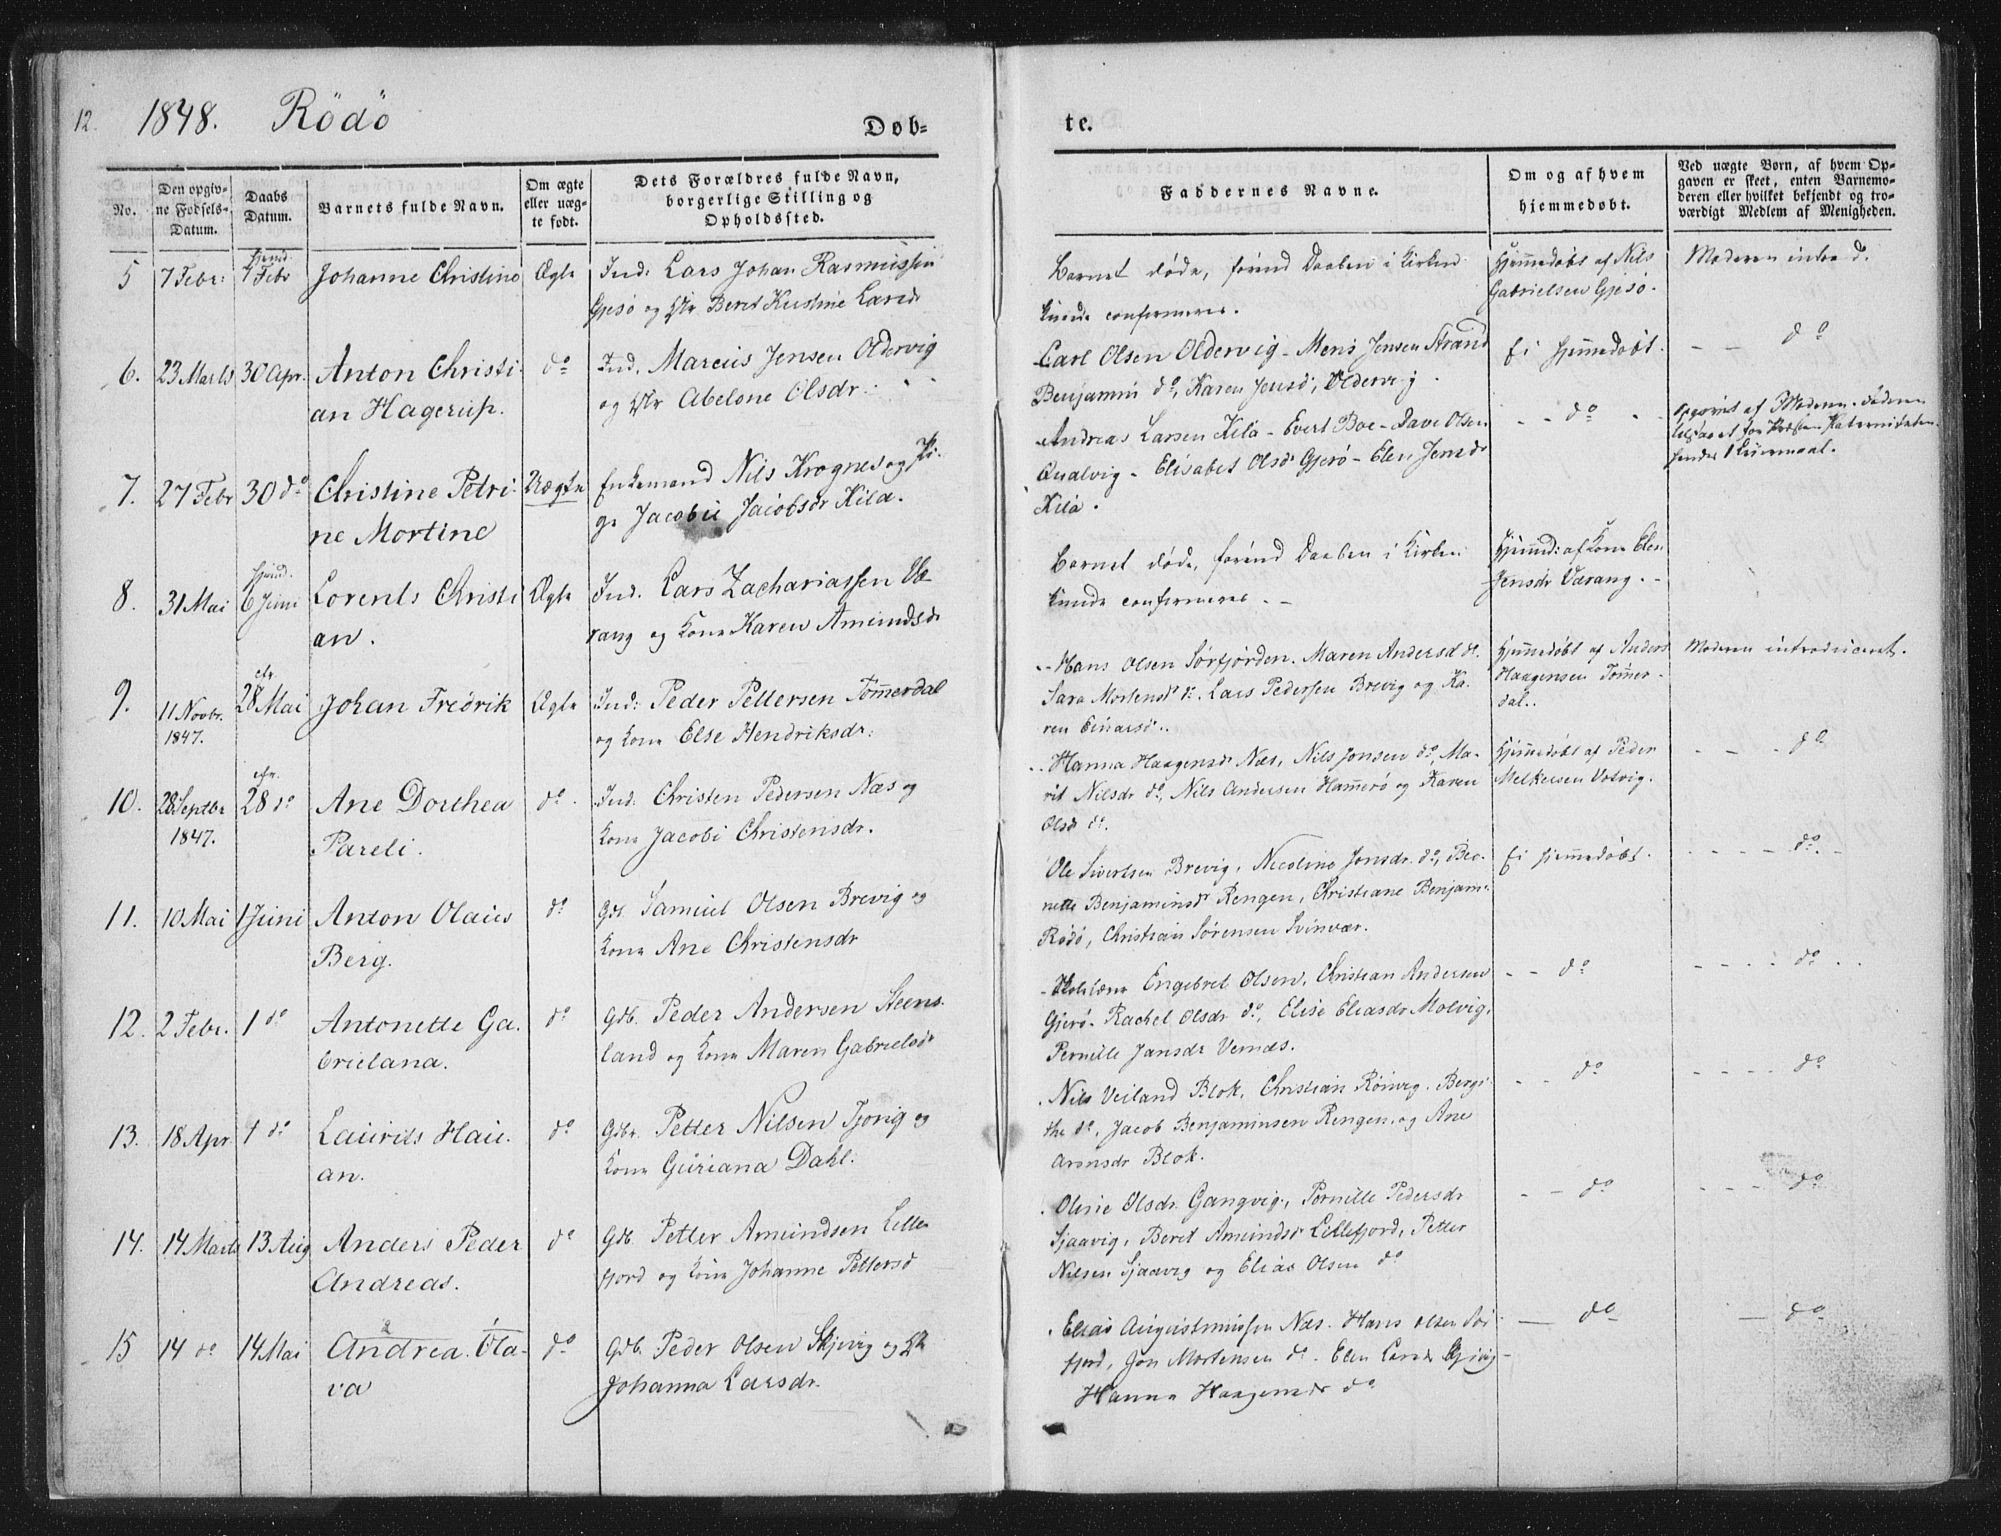 12. 1848. Rödö
Døb-
te.
No.
Den opgiv-
ne Fødsels-
Datum.
Daabs
Datum.
Barnets fulde Navn.
Om ægte
eller uæg-
te født.
Dets Forældres fulde Navn,
borgerlige Stilling og
Opholdssted.
Faddernes Navne.
Om og af hvem
hjemmedøbt.
Ved uægte Børn, af hvem Op-
gaven er skeet, enten Barnemo-
deren eller hvilket bekjendt og tro-
værdigt Medlem af Menigheden.
5 7 Febr: hjmd. 7 Febr Johanne Christine Ægte Ind. Lars Johan Rasmussen
Gjesø og Beret Kristine Larsdr
Barnet døde, førend Daaben i Kirken
kunde confirmeres.
Hjemmedøbt af Nils
Gabrielsen Gjesø.
Moderen introd.
6. 23 Marts 30 Apr. Anton Christi-
an Hagerup.
do Ind. Marcus Jensen Oldervig
og Abelone Olsdr.
Carl Olsen Oldervig - Mens Jensen Strand
Benjamin do, Karen Jensd, Oldervig.
Ei hjemmedøbt.
- - do
7. 27 Febr 30 do Christine Petri-
ne Mortine
Uægte Enkemand Nils Krognes og Pi-
ge Jacobie Jacobsdr Kila.
Andreas Larsen Kilå - Evert Boe - Dave Olsen
Qualvig - Elisabet Olsd Gjerö - Elen Jensdr
Kilå.
- - do -
Opgivet af Moderen
8. 31 Mai hjmd. 6 Juni Lorents Christi-
an.
Ægte Ind. Lars Zachariassen Væ-
rang og Kone Karen Amundsdr
Barnet døde, førend Daaben i Kirken
kunde confirmeres. -
Hjemmd: af Kone Elen
Jensdr Værang. -
9. 11 Novbr.
1847.
cfr.
28 Mai Johan Fredrik Ægte Ind: Peder Pettersen Tømmerdal
og Kone Else Hendriksdr:
Hans Olsen Sörfjorden. Maren Andersd do.
Sara Mortensd do. Lars Pedersen Brevig og Ka-
ren Einarsd..
Hjemmedøbt af Anders
Haagensen Tømer-
dal..
Moderen introduceret.
10. 28 Septbr
1847.
cfr.
28 do Ane Dorthea
Pareli.
do. Ind. Christen Pedersen Næs og
Kone Jacobi Christensdr.
Hanna Haagensdr Næs, Nils Jonsen do, Ma-
rit Nilsdr do, Nils Andersen Hamerö og Karen
Olsd do.
Hjemmedøbt af Peder
Melkersen Votvig.
- - - do
11. 10 Mai 1 Juni Anton Olaus
Berg.
do Gdb. Samuel Olsen Brevig og
Kone Ane Christensdr
Ole Sivertsen Brevig, Nicoline Jonsdr. do, Ber-
nette Benjaminsdr Rengen, Christiane Benjam:
Rödö, Christian Sörensen Svinvær.
Ei hjemmedøbt.
- - - - do. -
12. 2 Febr. 1 do Antonette Ga-
brielana.
do Gdb. Peder Andersen Steens-
land og Kone Maren Gabrielsdr
Engebret Olsen, Christian Andersen
Gjerö. Rachel Olsdr do, Elise Eliasdr Molvig,
Pernille Jansdr Vernes.
- - do
- - - - do. . .
13. 18 Apr 1 do Laurits Hau-
an.
do Gdbr. Petter Nilsen Tjorig og
Kone Guriana Dahl.
Nils Veiland Blok. Christian Röivig. Bergi-
the do. Jacob Benjaminsen Rengen. og Ane
Aronsdr Blok.
- - do
- - - - do
14. 14 Marts 13 Aug Anders Peder
Andreas.
do Gdb. Petter Amundsen Lille-
fjord og Kone Johanne Pettersd
Oline Olsdr. Gangvig., Pernille Pedersdr
Sjaavig, Beret Amundsd Lillefjord, Petter
Nilsen Sjaavig og Elias Olsen do
- - do
- - - - do
15 14 do 14 Mai Andrea. Ola-
va
do Gdb. Peder Olsen Skjevig og
Johanna Larsdr.
Elias Augustinussen Næs. Hans Olsen Sör-
fjord, Jon Mortensen do. Elen Larsdr
Hanna Haagensdr do
- do
- do